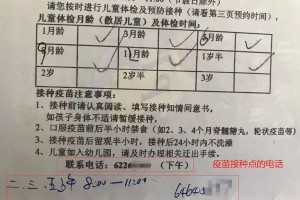 请您按时进行儿童体检及预防接种（请看第三页预约时间），
儿童体检月龄（散居儿童）及体检时间：
1月龄
3月龄
月龄
月龄
1岁半
2岁
2岁半
3岁
接种疫苗注意事项：
1、接种前请认真阅读、填写接种知情同意书，
如孩子身体不适请暂缓接种，
2、口服疫苗前后半小时禁食（如2、3、4个月脊髓糖丸，轮状疫苗等）
3、接种后留观半小时，接种后24小时内不洗澡
4、儿童如入幼儿园，请及时办理相关迁出手续。
疫苗接种点的电话
联系电话：622（下午）
二.三.五 8:00—11:00